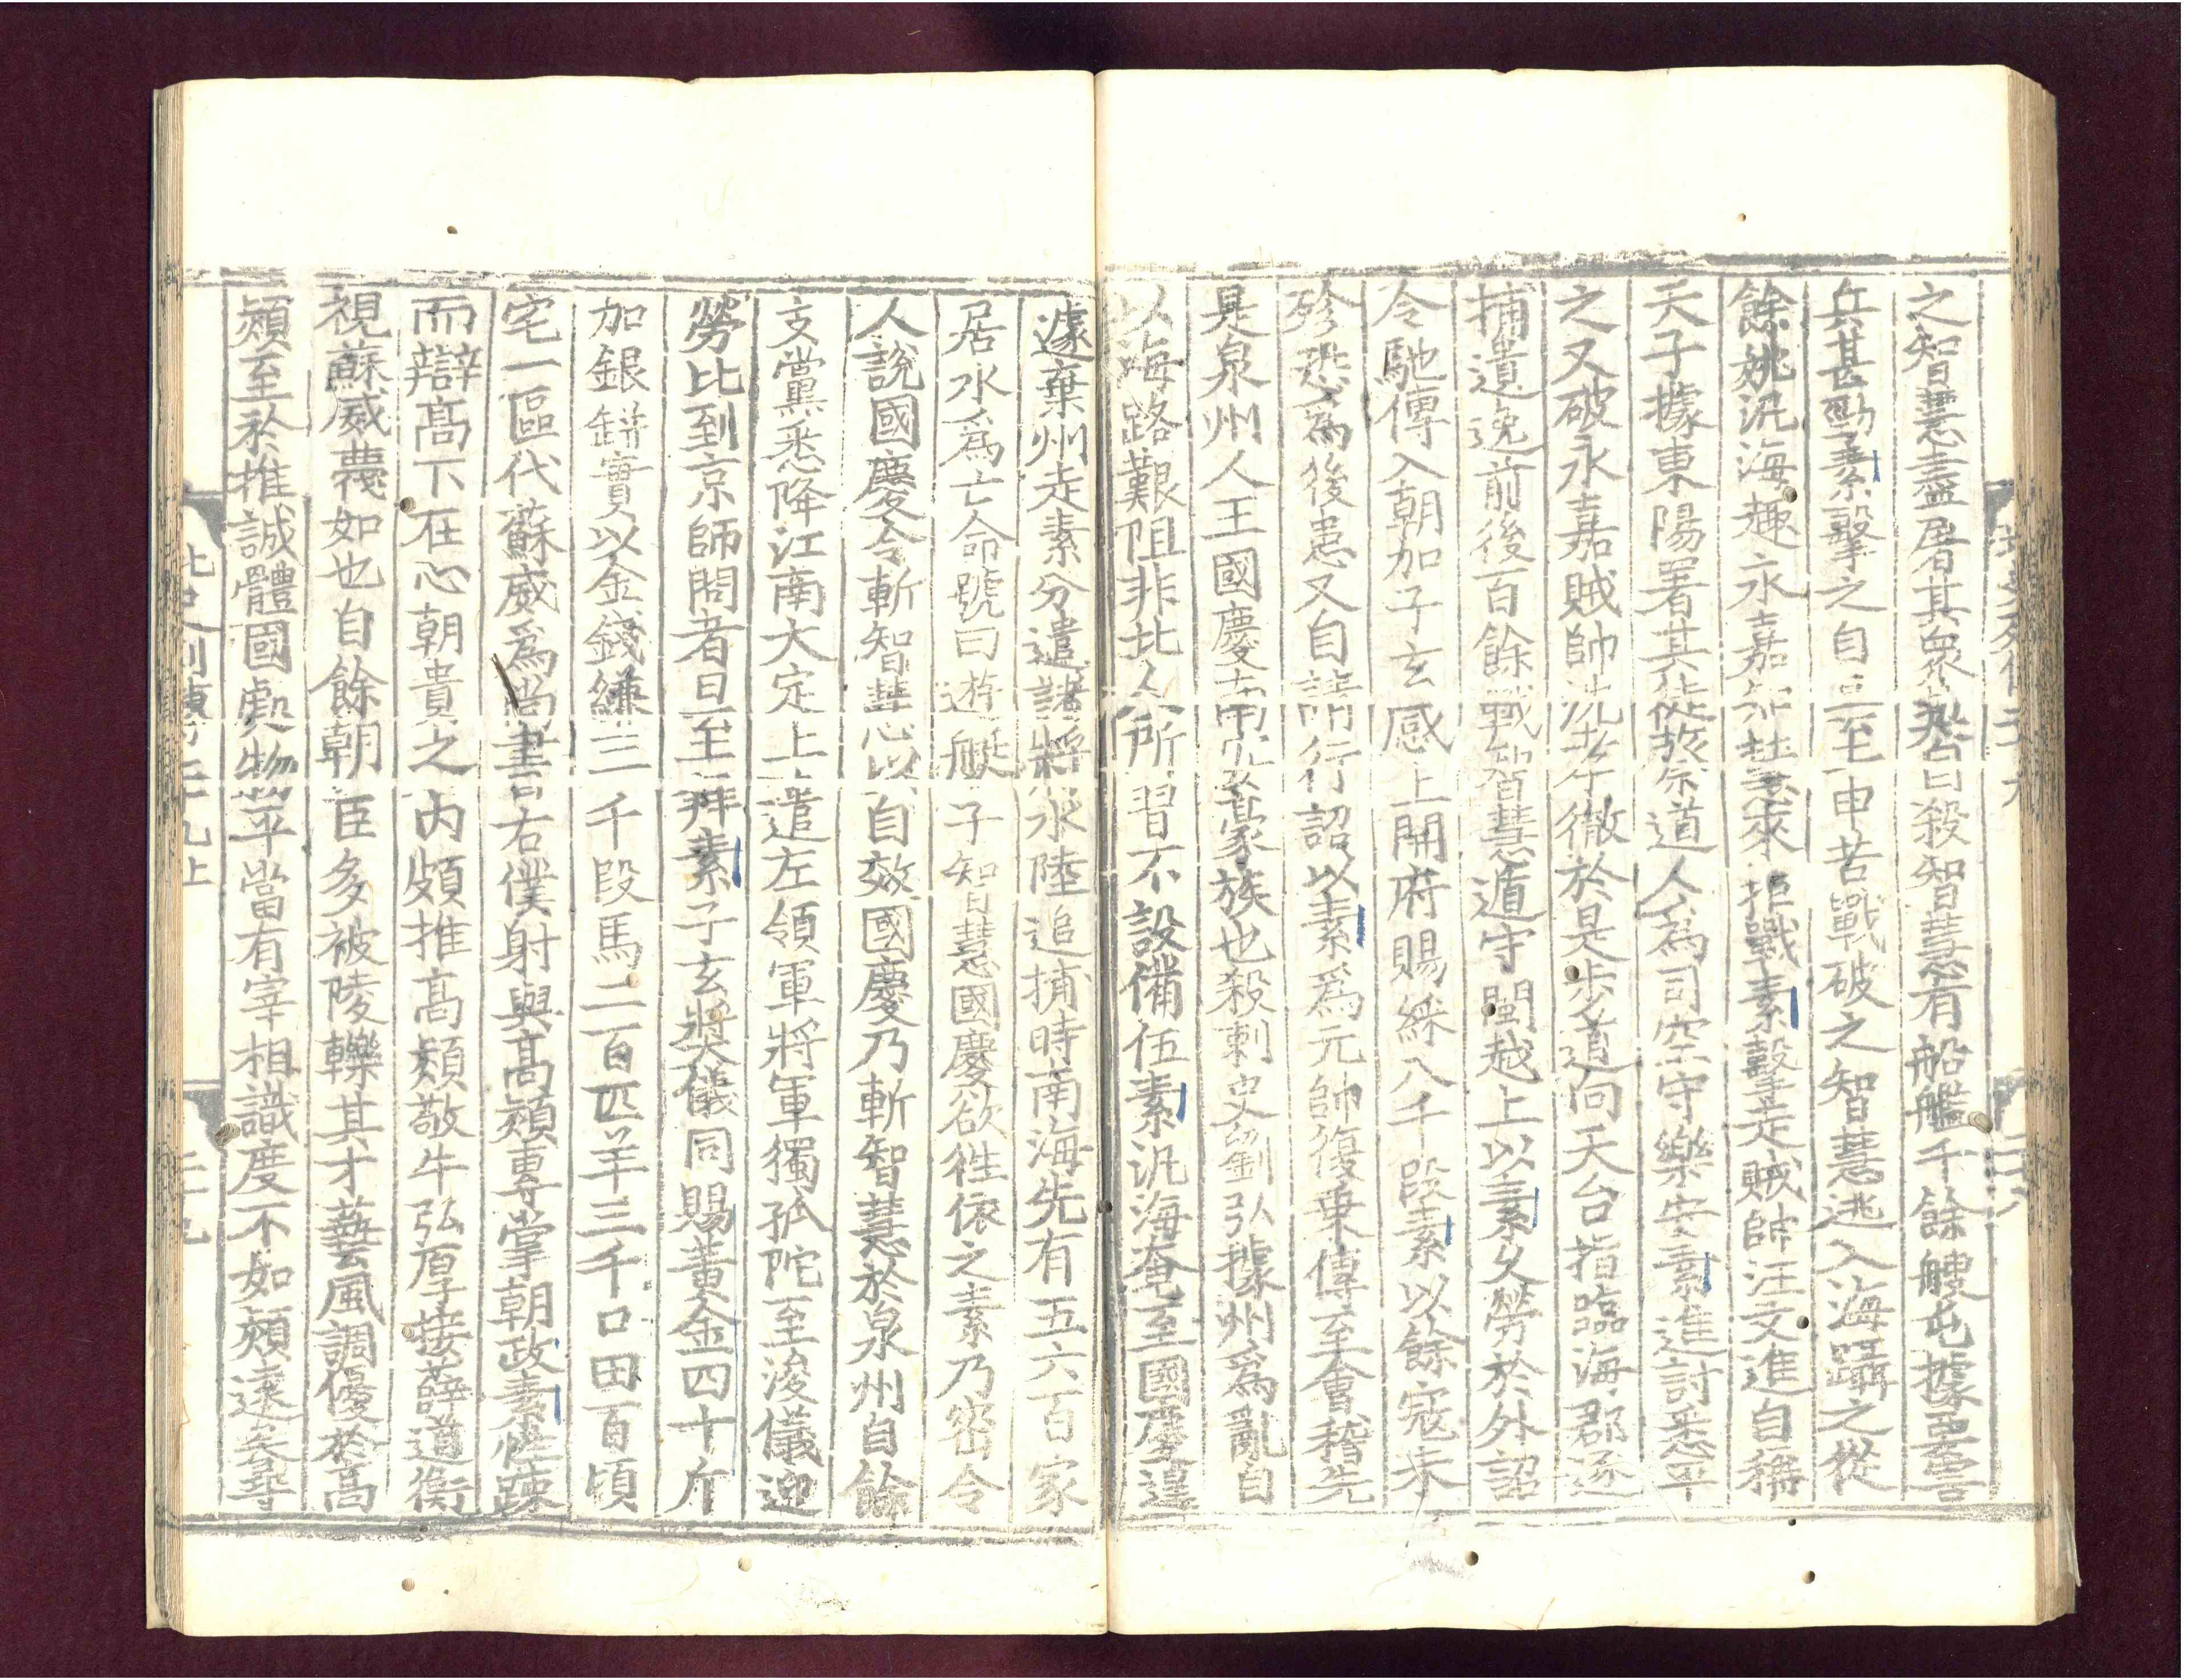 之智慧盡屠其衆 智慧有船艦千餘艘屯據要害
兵甚勁素擊之自旦至申苦戰破之智慧逃入海躡之從
餘姚汎海趣永嘉智慧來拒戰素擊走賊帥汪文進自稱
天子據東陽署其徒蔡道人爲司空守樂安素進討悉平
之又破永嘉賊帥沈孝徹於是步道向天台指臨海郡逐
捕遺逸前後百餘戰智慧遁守閩越上以素久勞於外詔
令馳傳入朝加子玄感上開府賜綵八千段素以餘寇未
殄恐爲後患又自請行詔以素爲元帥復乗傳至會稽先
是泉州人王國慶南安豪族也殺刺史劉弘據州爲亂自
以海路艱阻非北人所習不設備伍素汎海奄至國慶遑
遽棄州走素分遣諸將水陸追捕時南海先有五六百家
居水爲亡命號曰遊艇子智慧國慶欲徃依之素乃密令
人說國慶令斬智慧以自效國慶乃斬智慧於泉州自餘
支黨悉降江南大定上遣左領軍將軍獨孤陀至浚儀迎
勞比到京師問者日至拜素子玄奬儀同賜黃金四十斤
加銀缾實以金錢縑三千段馬二百匹羊三千口田百頃
宅一區代蘇威爲尚書右僕射與高熲專掌朝政素性踈
而辯高下在心朝貴之内頗推高熲敬牛弘厚接薛道衡
視蘇威蔑如也自餘朝臣多被陵轢其才藝風調優於高
熲至於推誠體國處物平當有宰相識度不如熲遠矣尋
北史列傳二十九上 二十九